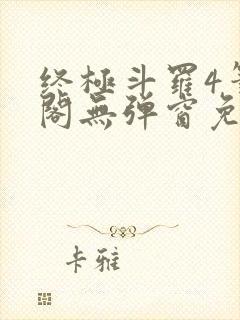 终極斗羅4
閣無弹窗免
卡雅